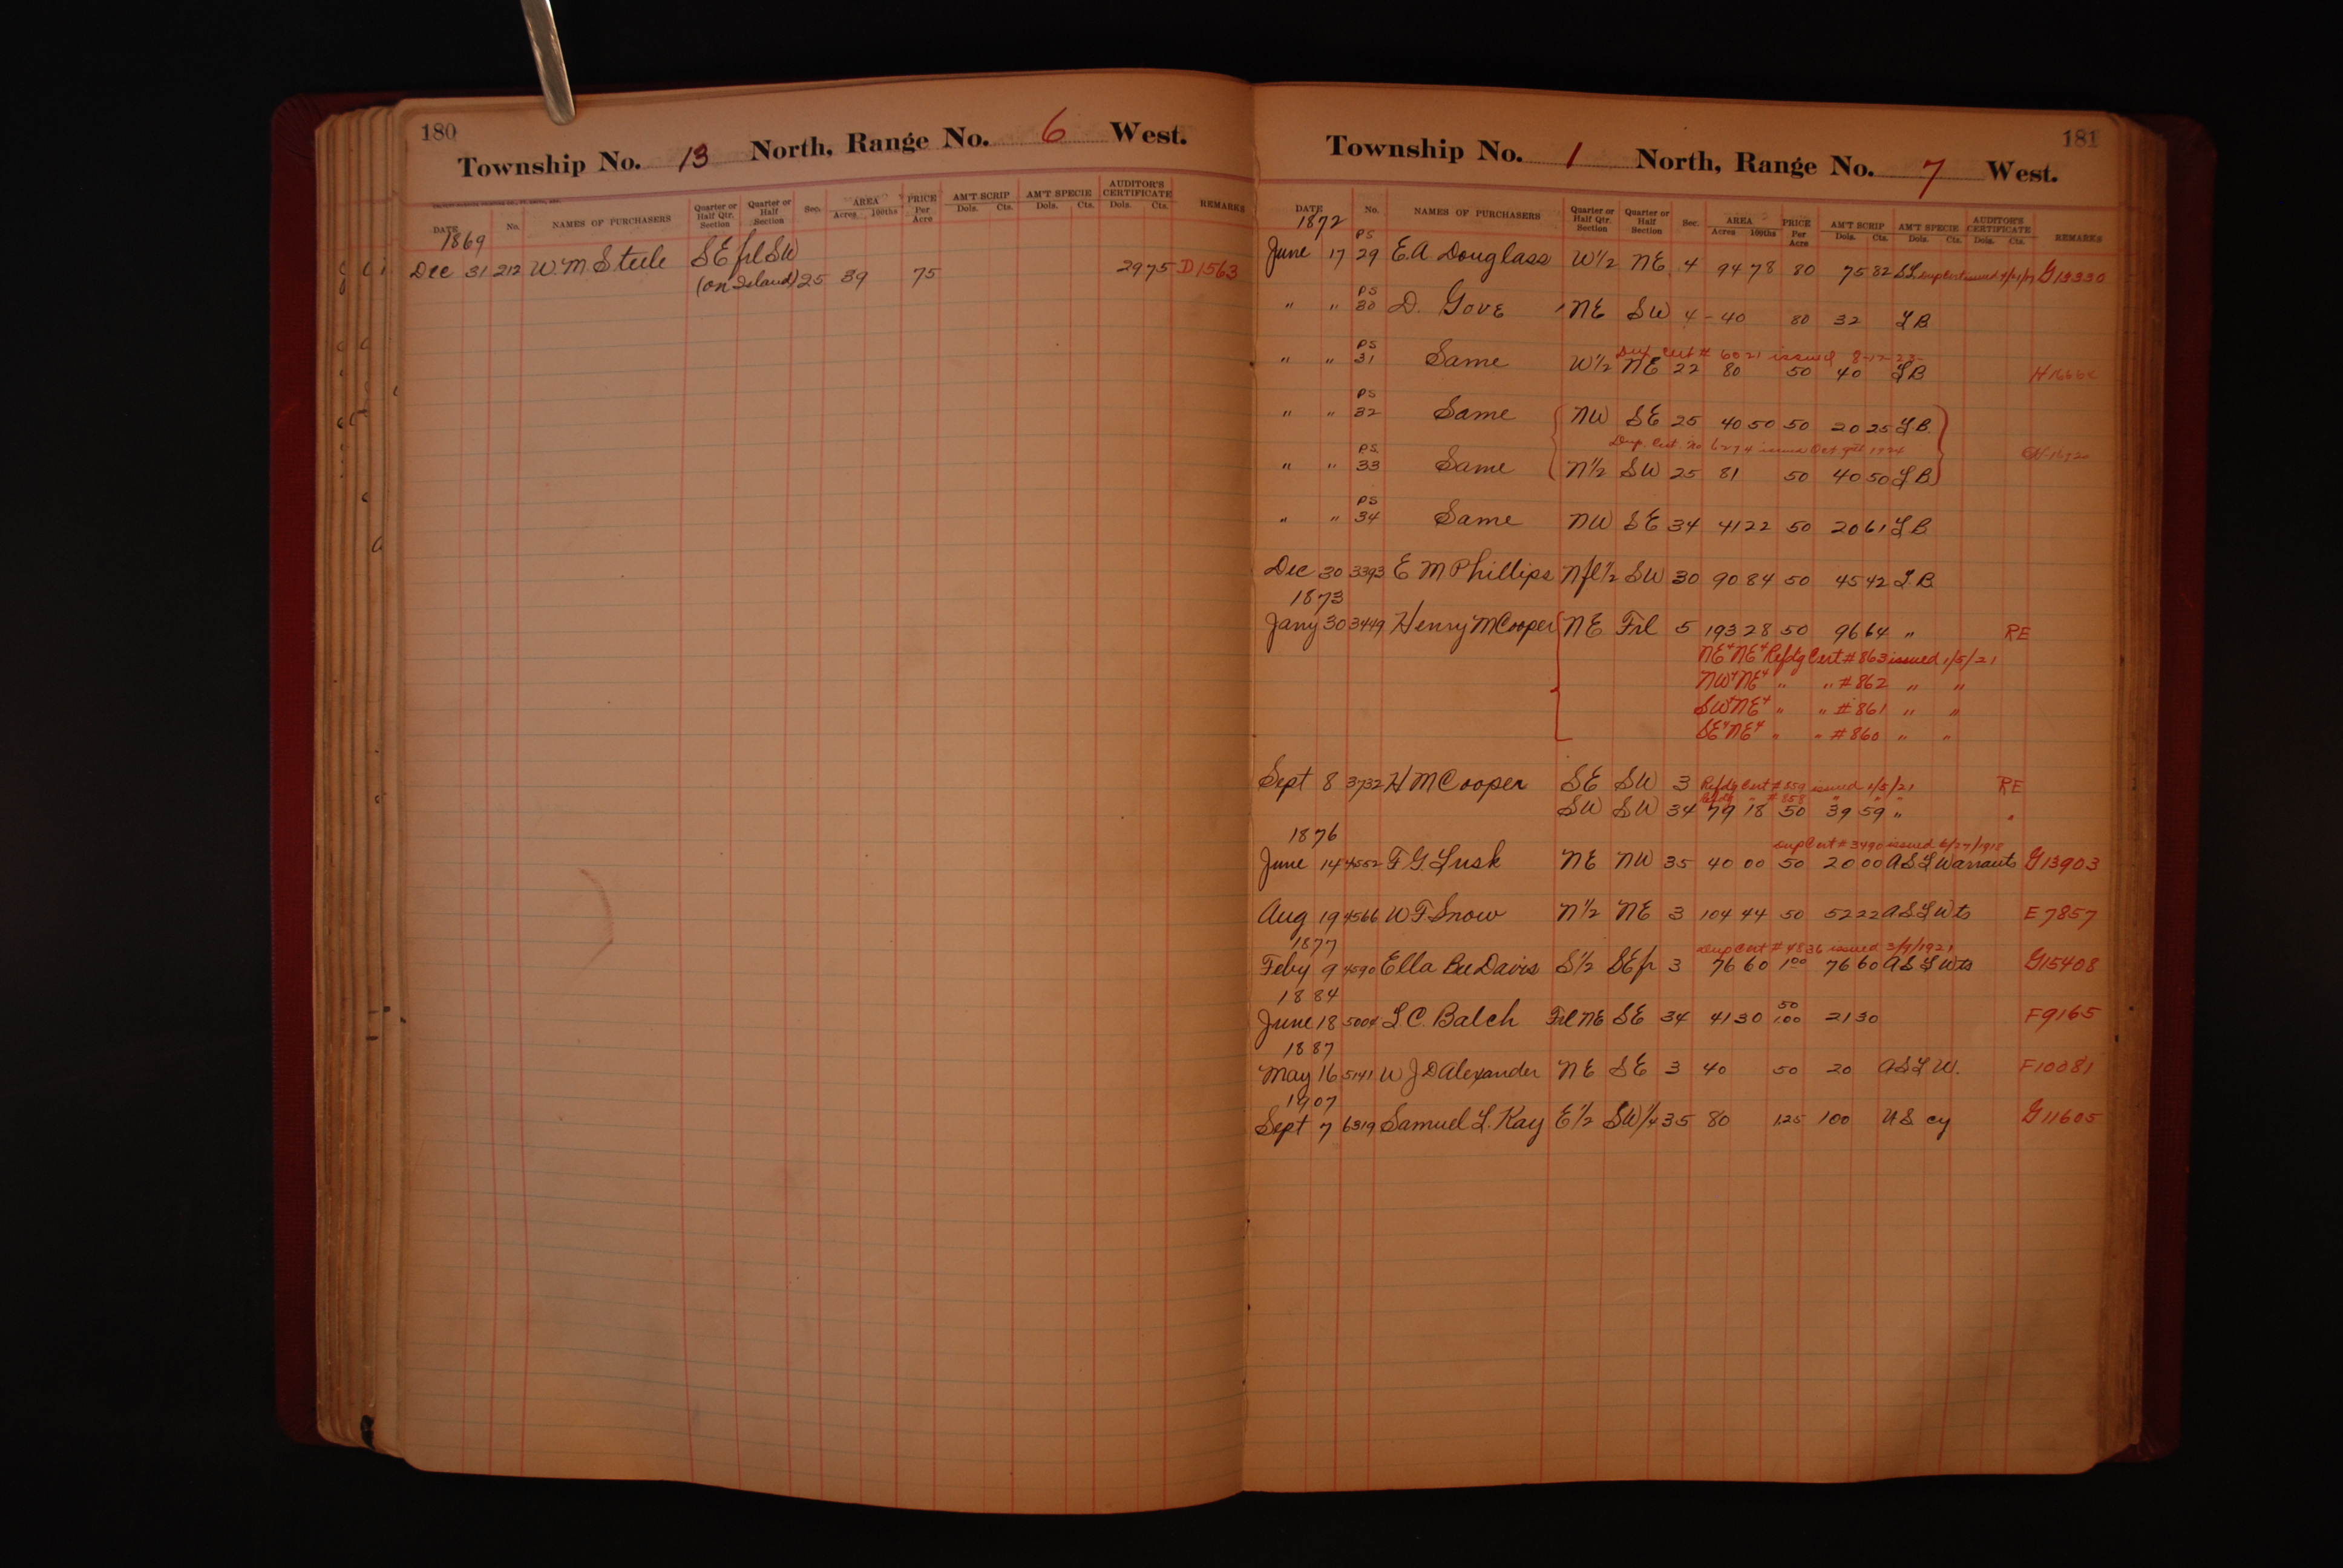 180
Township No. 13 North, Range No. 6 West.
DATE No. NAMES OF PURCHASERS Quarter or Half Qtr. Section Quarter or Half Section Sec. AREA Acres 100ths PRICE Per Acre AM'T SCRIP Dols. Cts. AM'T SPECIE Dols. Cts. AUDITOR'S CERTIFICATE Dols. Cts. REMARKS
1869
Dec 31 212 W. M. Steele SE frl SW
(on Island) 25 39 75 29 75 D1563
181
Township No. 1 North, Range No. 7 West.
DATE No. NAMES OF PURCHASERS Quarter or Half Qtr. Section Quarter or Half Section Sec. AREA Acres 100ths PRICE Per Acre AM'T SCRIP Dols. Cts. AM'T SPECIE Dols. Cts. AUDITOR'S CERTIFICATE Dols. Cts. REMARKS
1872
PS
June 17 29 E. A. Douglass W½ NE 4 94 78 80 75 82 Dup Cert issued G13330
PS
" " 30 D. Gove NE SW 4 - 40 80 32 L B
PS
Dup Cert # 6021 issued 8-12-23-
" " 31 Same W½ NE 22 80 50 40 L B
PS
" " 32 Same NW SE 25 40 50 50 20 25 L B.
Dup. Cert. No 6274 issued Oct 1924
PS
" " 33 Same N½ SW 25 81 50 40 50 L B
PS
" " 34 Same NW SE 34 41 22 50 20 61 L B
Dec 30 3393 E M Phillips N frl ½ SW 30 90 84 50 45 42 L. B
1873
Jany 30 3449 Henry M Cooper NE Frl 5 193 28 50 96 64 " RE
NE⁴ NE⁴ Refdg Cert # 863 issued 1/5/21
NW⁴ NE⁴ " " # 862 " "
SW⁴ NE⁴ " " # 861 " "
SE⁴ NE⁴ " " # 860 " "
Sept 8 3732 H M Cooper SE SW 3 Refdg Cert # 859 issued 1/5/21 RE
Refdg " # 858 " "
SW SW 34 79 18 50 39 59 " "
1876
Dup Cert # 3490 issued 6/27/1918
June 14 4552 F. G. Lusk NE NW 35 40 00 50 20 00 A S L Warrants G13903
Aug 19 4566 W F Snow N½ NE 3 104 44 50 52 22 A S L Wts E 7857
1877
Dup Cert # 4836 issued 3/9/1921
Feby 9 4590 Ella Bee Davis S½ SE fr 3 76 60 1 00 76 60 A S L Wts G15408
1884
50
June 18 5004 L. C. Balch Frl NE SE 34 41 30 1.00 21 30 F9165
1887
May 16 5141 W J D Alexander NE SE 3 40 50 20 A S L W. F10081
1907
Sept 7 6319 Samuel L. Kay E½ SW¼ 35 80 1.25 100 U S cy G11605